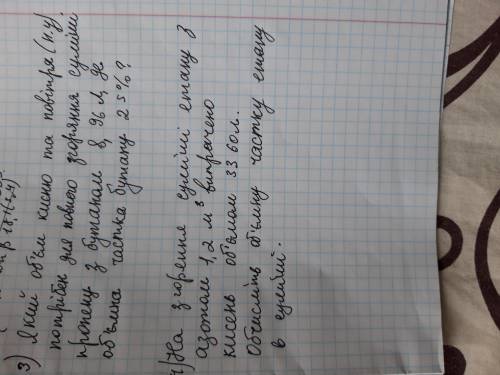 3) Який об'єм кисню та повітря (н.у)
потрібен для повного згоряння суміші
пропену з бутаном 8,96 л, де
об'ємна частка бутану 25%?
4) На згорення суміші етану з
азотом 1,2 м³ витрачено
кисень об'ємом 3360л.
Обчисліть об'ємну частку етану
в суміші.